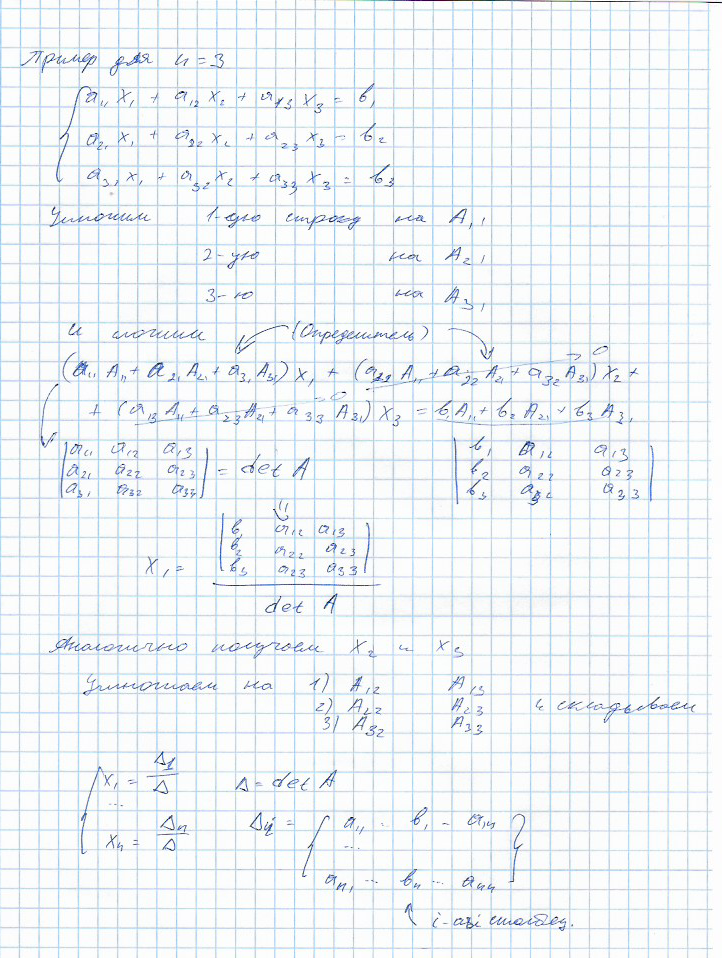 Пример для n = 3
a₁₁ x₁ + a₁₂ x₂ + a₁₃ x₃ = b₁
a₂₁ x₁ + a₂₂ x₂ + a₂₃ x₃ = b₂
a₃₁ x₁ + a₃₂ x₂ + a₃₃ x₃ = b₃
Умножим 1-ую строку на A₁₁
2-ую на A₂₁
3-ю на A₃₁
и сложим (Определитель)
(a₁₁ A₁₁ + a₂₁ A₂₁ + a₃₁ A₃₁) x₁ + (a₁₂ A₁₁ + a₂₂ A₂₁ + a₃₂ A₃₁) x₂ + → 0
+ (a₁₃ A₁₁ + a₂₃ A₂₁ + a₃₃ A₃₁) x₃ = b₁A₁₁ + b₂A₂₁ + b₃A₃₁ → 0
| a₁₁ a₁₂ a₁₃ | | b₁ a₁₂ a₁₃ |
| a₂₁ a₂₂ a₂₃ | = det A | b₂ a₂₂ a₂₃ |
| a₃₁ a₃₂ a₃₃ | | b₃ a₃₂ a₃₃ |
| b₁ a₁₂ a₁₃ |
| b₂ a₂₂ a₂₃ |
x₁ = | b₃ a₂₃ a₃₃ |
det A
Аналогично получаем x₂ и x₃
Умножаем на 1) A₁₂ A₁₃
2) A₂₂ A₂₃ и складываем
3) A₃₂ A₃₃
x₁ = Δ₁/Δ Δ = det A
...
xₙ = Δₙ/Δ Δᵢ = a₁₁ ... b₁ ... a₁ₙ
...
aₙ₁ ... bₙ ... aₙₙ
i-ый столбец.